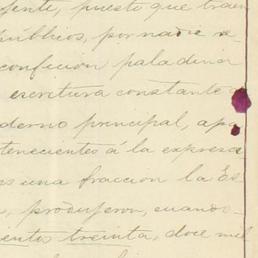 fente, puesto que traen
públicos, por nadie
confesion paladina
escritura constante
derno principal, apa
tenecientes á la expresa
una fraccion la Es
produjeron, cuando
ientos treinta, doce mil